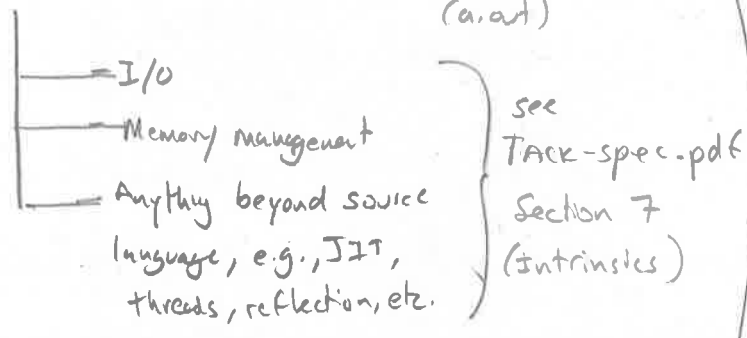 (a.out)
I/O
Memory management
Anything beyond source
language, e.g., JIT,
threads, reflection, etc.
see
TACK-spec.pdf
Section 7
(Intrinsics)